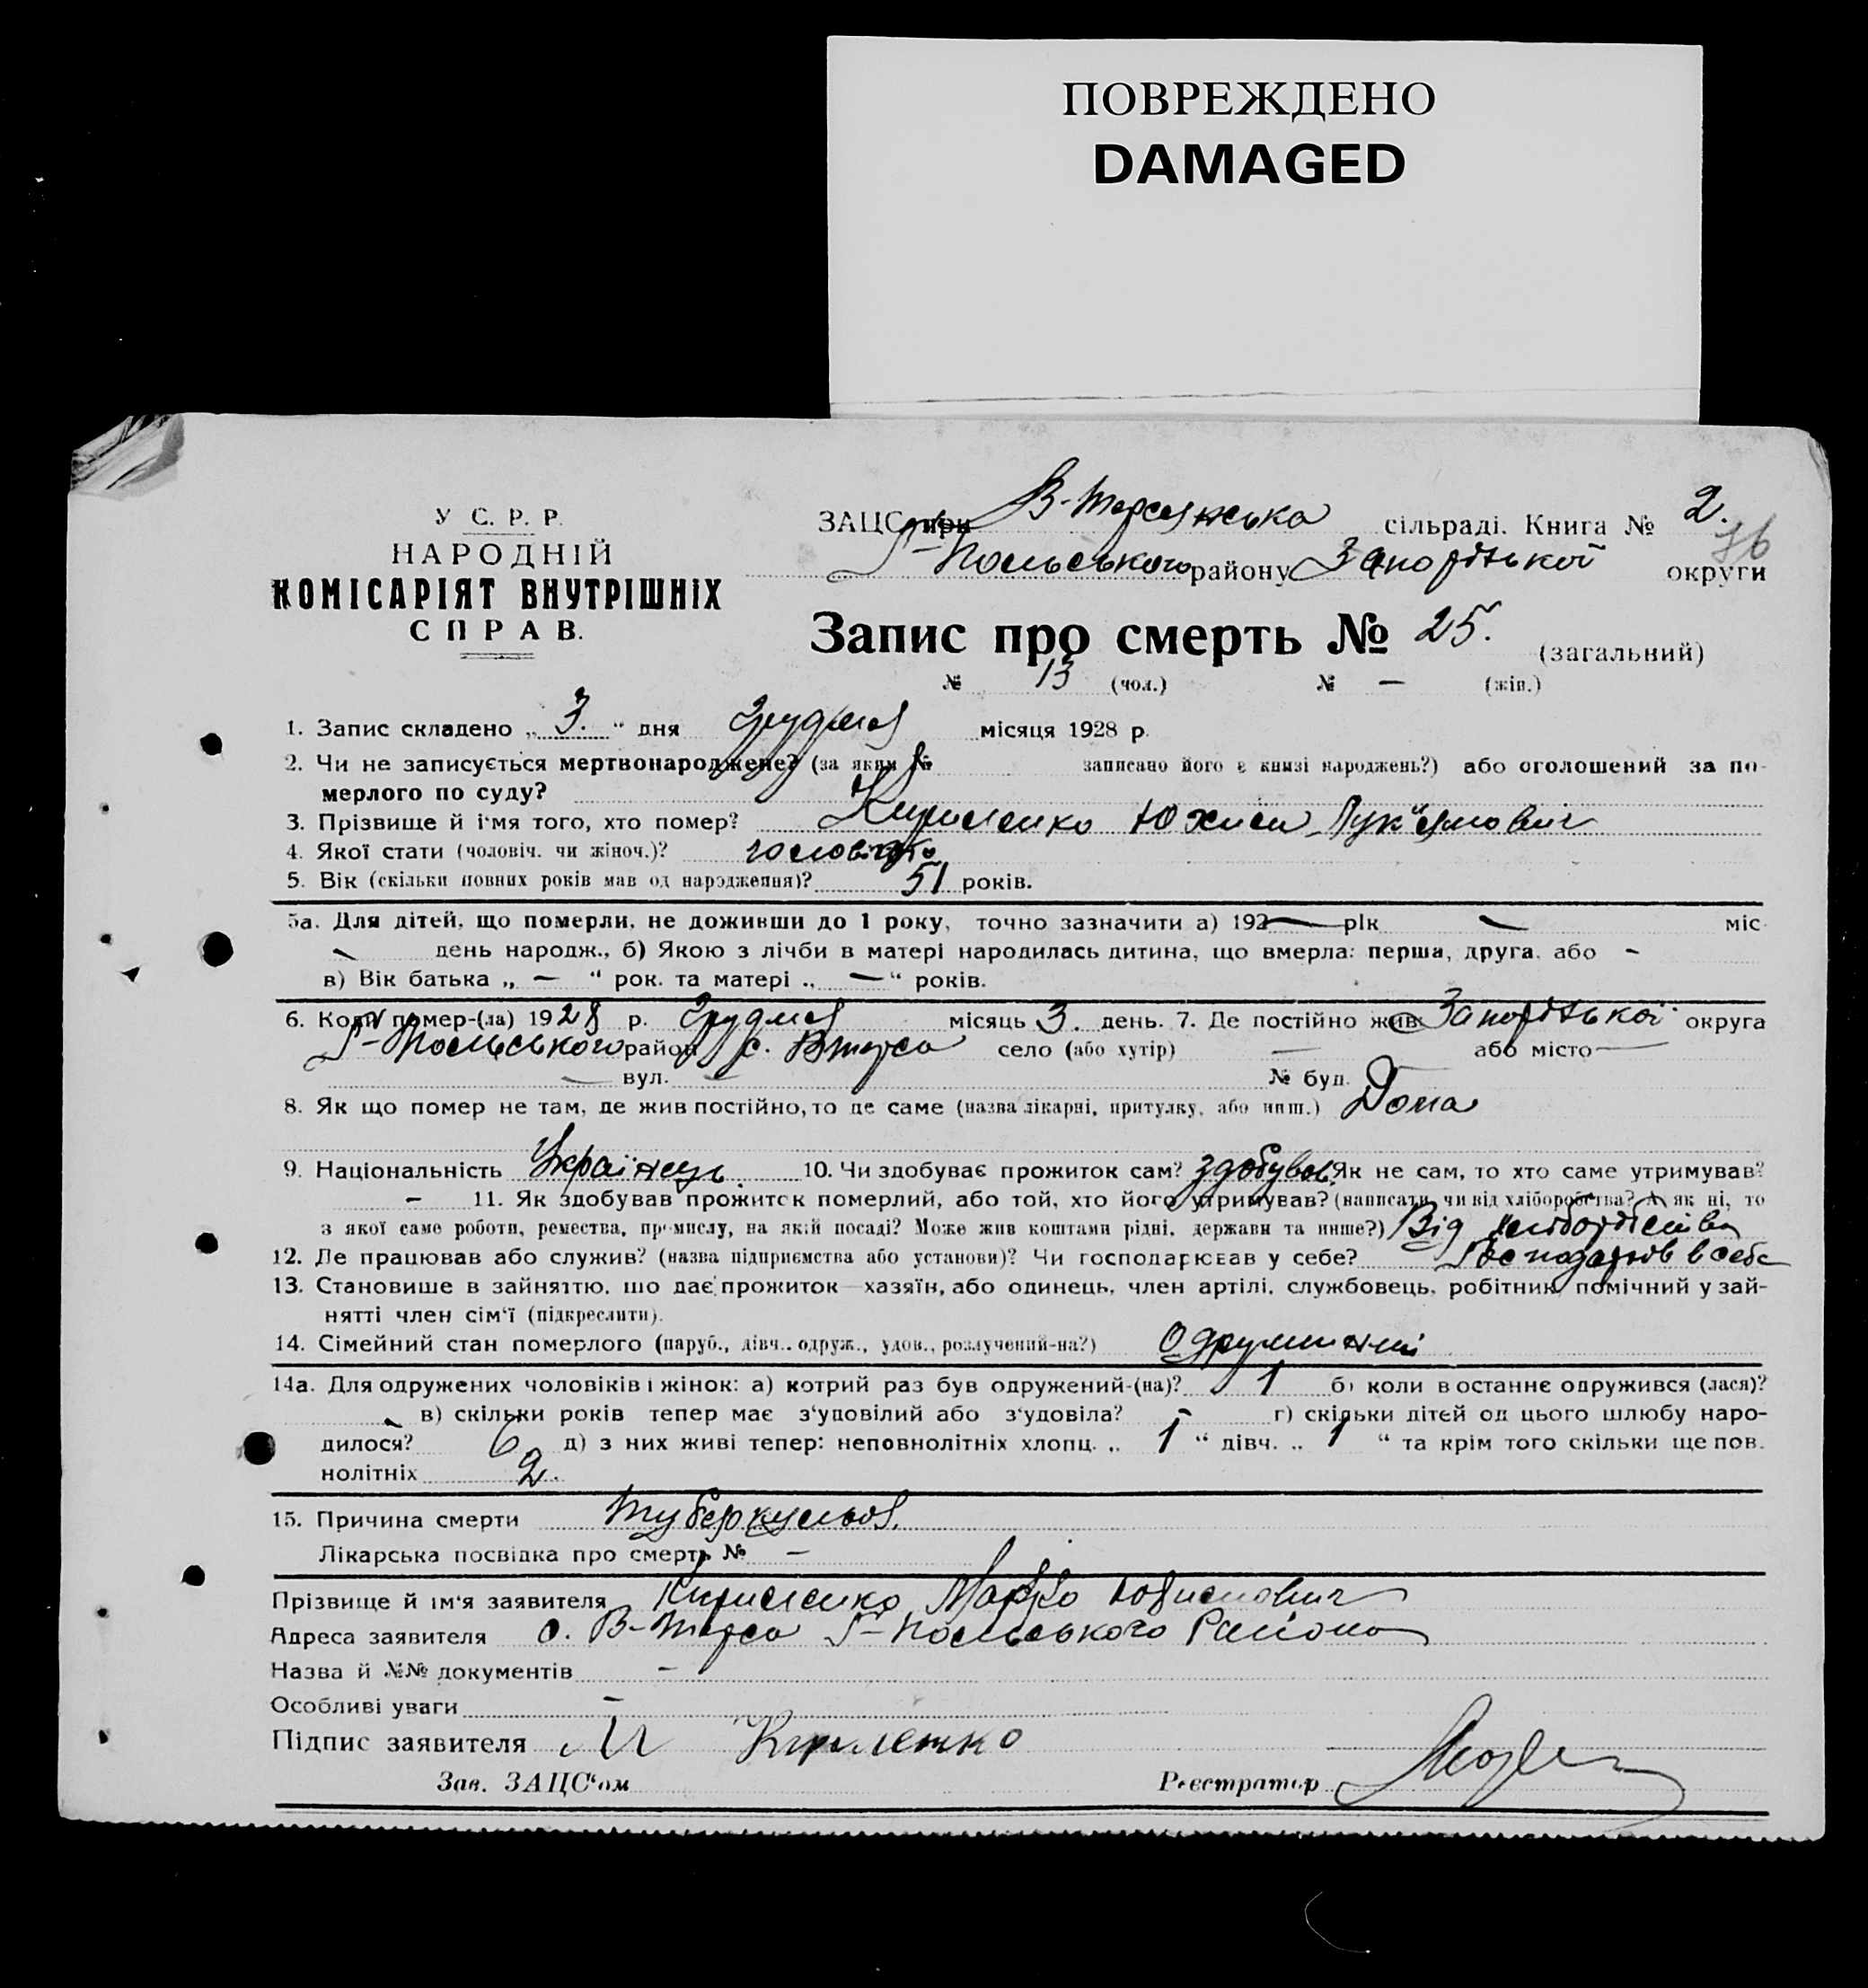 ПОВРЕЖДЕНО
DAMAGED
У С. Р. Р.
НАРОДНІЙ
КОМІСАРІЯТ ВНУТРІШНІХ
СПРАВ.
ЗАЦС при В-Терсянська сільраді. Книга № 2.
76
Г-Польського району Запорізької округи
Запис про смерть № 25. (загальний)
№ 13 (чол.) № — (жін.)
1. Запис складено „ 3. “ дня Грудня місяця 1928 р.
2. Чи не записується мертвонароджене? (за яким № записано його в книзі народжень?) або оголошений за по-
мерлого по суду?
3. Прізвище й ім'я того, хто помер? Кириленко Юхим Лук'янович
4. Якої стати (чоловіч. чи жіноч.)?
5. Вік (скільки повних років мав од народження)? 51 років.
5а. Для дітей, що померли, не доживши до 1 року, точно зазначити а) 192— рік — міс.
— день народж., б) Якою з лічби в матері народилась дитина, що вмерла: перша, друга, або —
в) Вік батька „ — “ рок. та матері „ — “ років.
6. Коли помер-(ла) 1928 р. Грудня місяць 3. день. 7. Де постійно жив Запорізької округа
Г-Польського район с. В терса село (або хутір) — або місто —
— вул. — № буд. —
8. Як що помер не там, де жив постійно, то де саме (назва лікарні, притулку, або инш.) Дома
9. Національність Українець. 10. Чи здобуває прожиток сам? здобував. Як не сам, то хто саме утримував?
— 11. Як здобував прожиток померлий, або той, хто його утримував? (написати, чи від хліборобства? А як ні, то
з якої саме роботи, ремества, промислу, на якій посаді? Може жив коштами рідні, держави та инше?) Від хліборобства
12. Де працював або служив? (назва підприємства або установи)? Чи господарював у себе? Господарюв в себе
13. Становище в зайняттю, що дає прожиток—хазяїн, або одинець, член артілі, службовець, робітник, помічний у зай-
нятті член сім'ї (підкреслити).
14. Сімейний стан померлого (паруб., дівч., одруж., удов., розлучений-на?) Одружиний
14а. Для одружених чоловіків і жінок: а) котрий раз був одружений-(на)? 1 б) коли в останнє одружився (лася)?
— в) скільки років тепер має з'удовілий або з'удовіла? — г) скільки дітей од цього шлюбу наро-
дилося? 6 д) з них живі тепер: неповнолітніх хлопц. „ 1 “ дівч. „ 1 “ та крім того скільки ще пов.
нолітніх 2.
15. Причина смерти Туберкульоз.
Лікарська посвідка про смерть № —
Прізвище й ім'я заявителя Кириленко Марко Юхимович
Адреса заявителя с. В-Терса Г-Польського Району
Назва й №№ документів —
Особливі уваги —
Підпис заявителя М Кириленко
Зав. ЗАЦС'ом Реєстратор